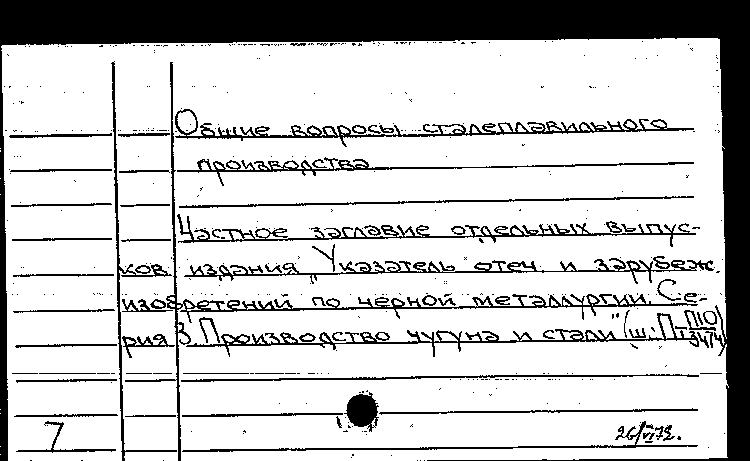 Общие вопросы сталеплавильного
производства
Частное заглавие отдельных выпус-
ков издания „Указатель отеч. и зарубеж.
изобретений по черной металлургии. Се-
рия 3. Производство чугуна и стали" (ш.:
7